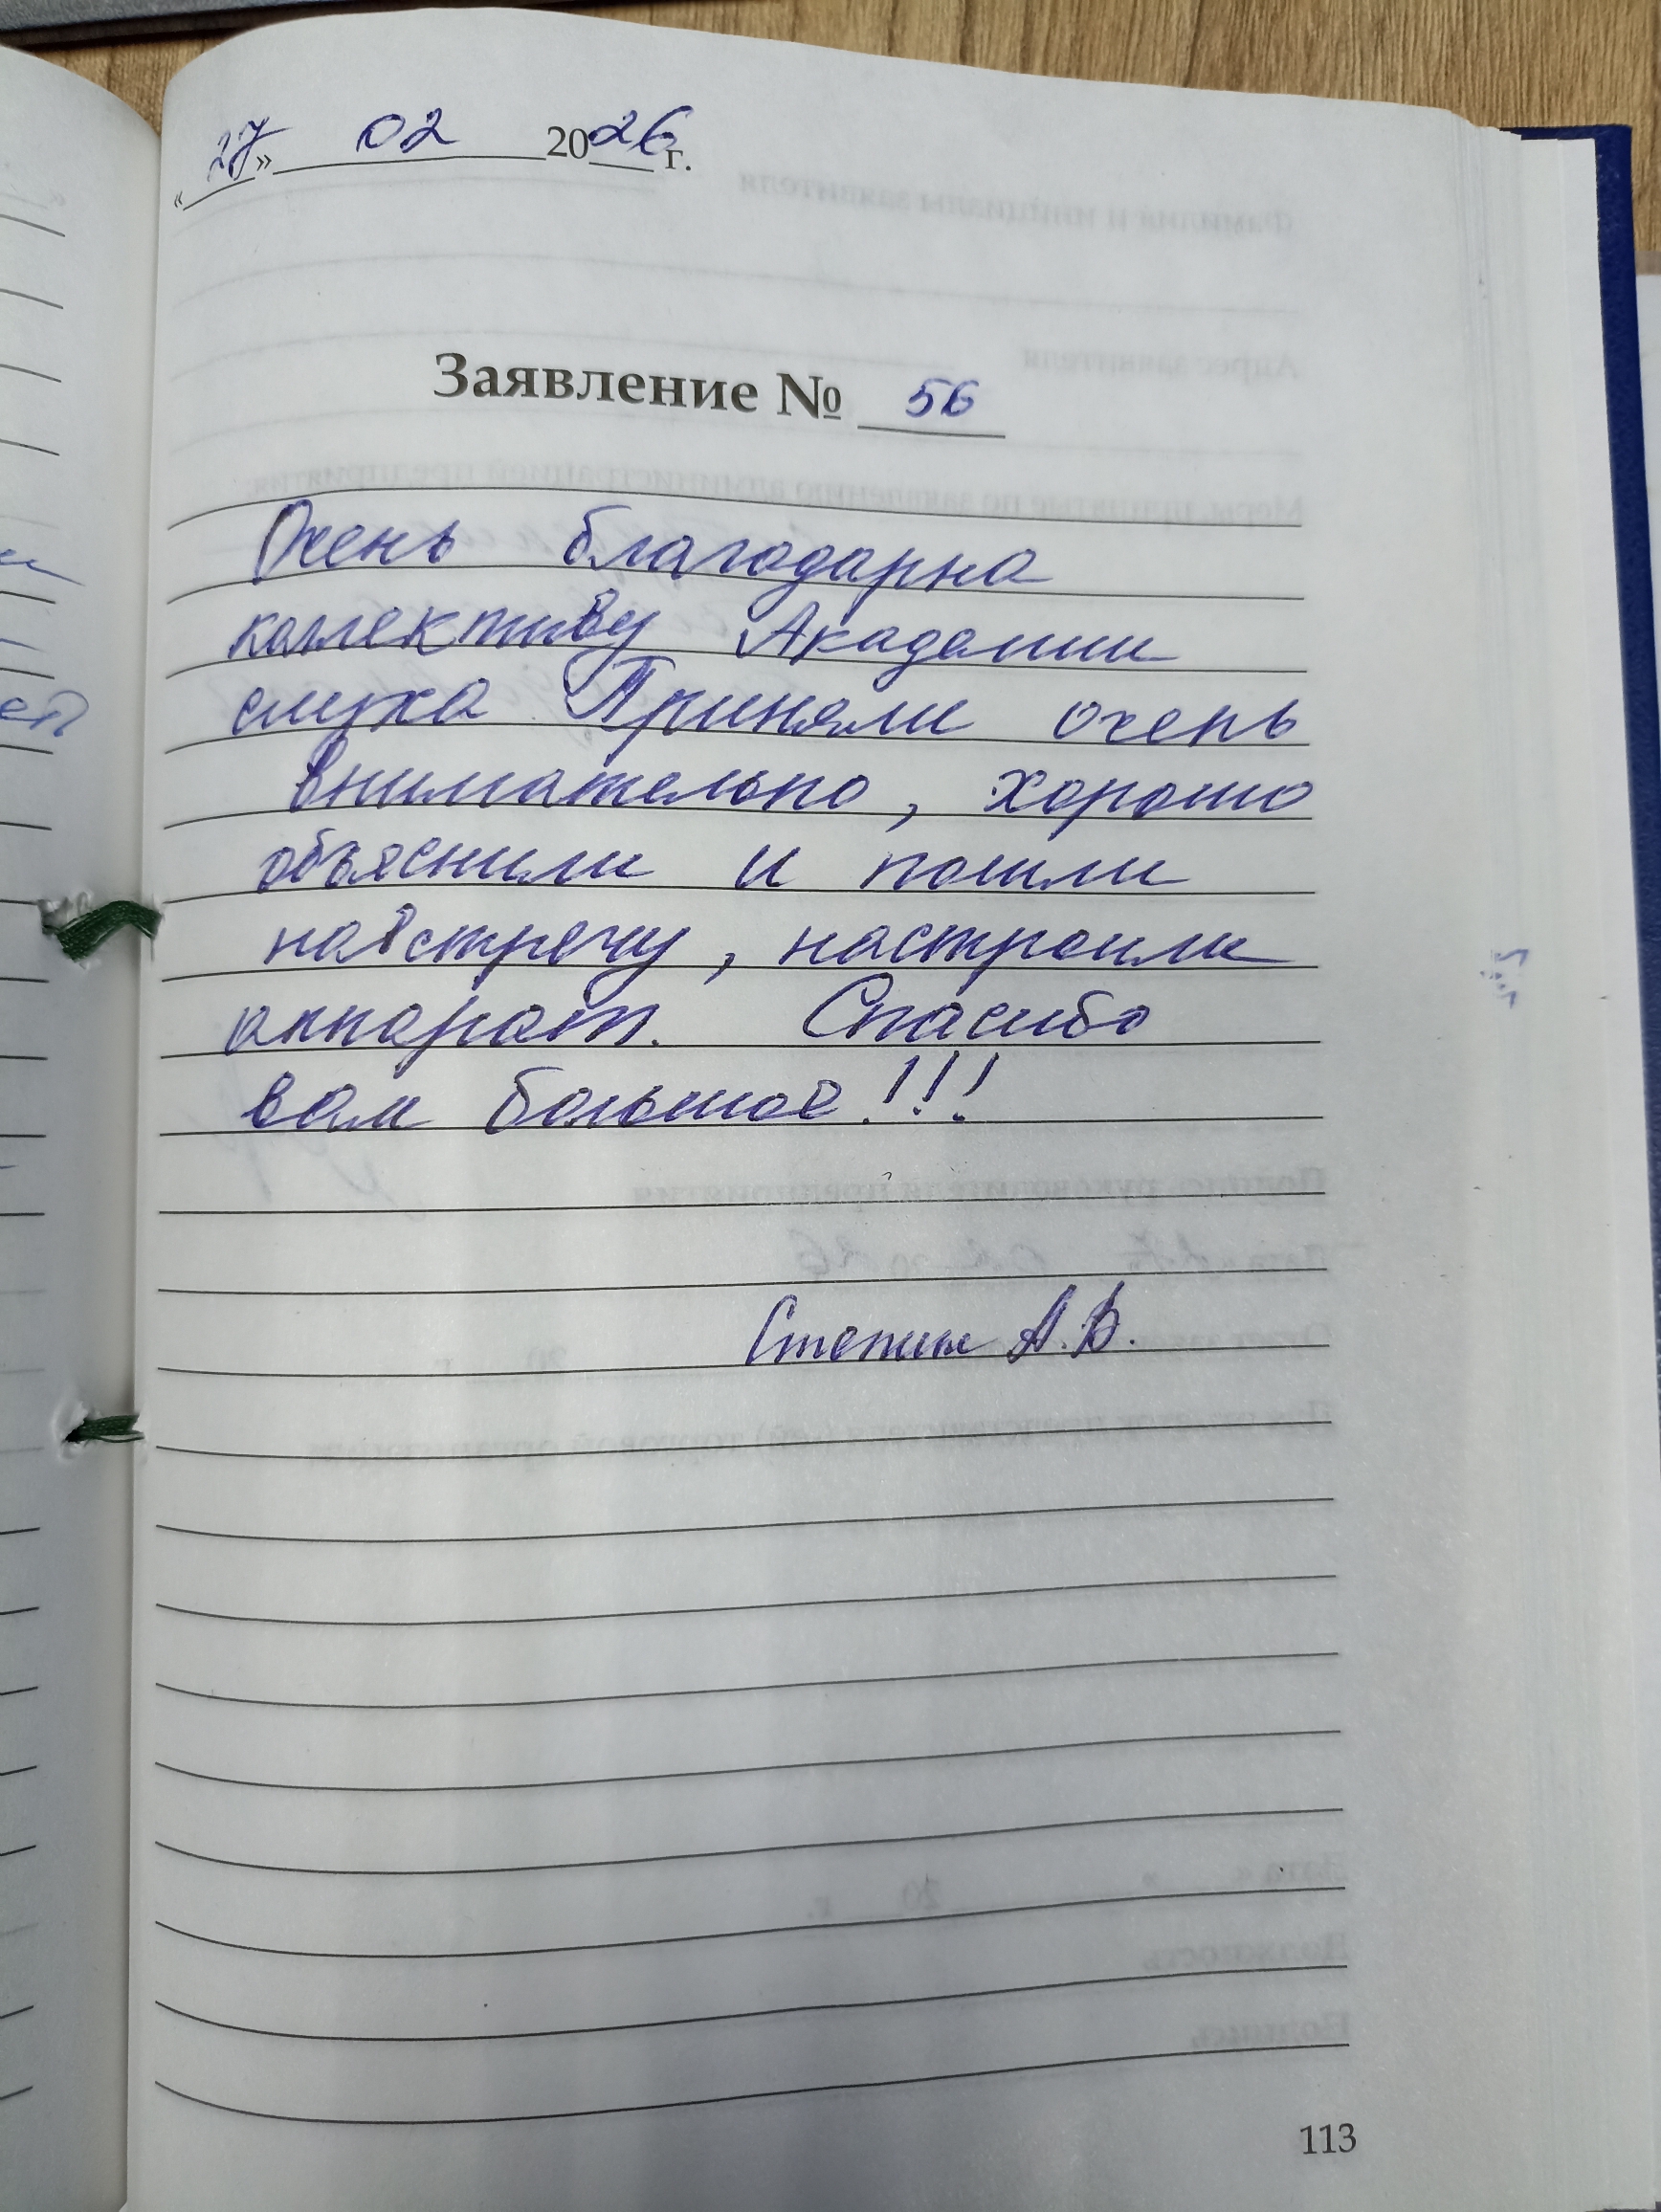 «27» 02 2026 г.
Заявление № 56
Очень благодарна
коллективу Академии
слуха Приняли очень
внимательно, хорошо
объяснили и пошли
навстречу, настроили
аппарат. Спасибо
вам большое!!!
А.В.
113